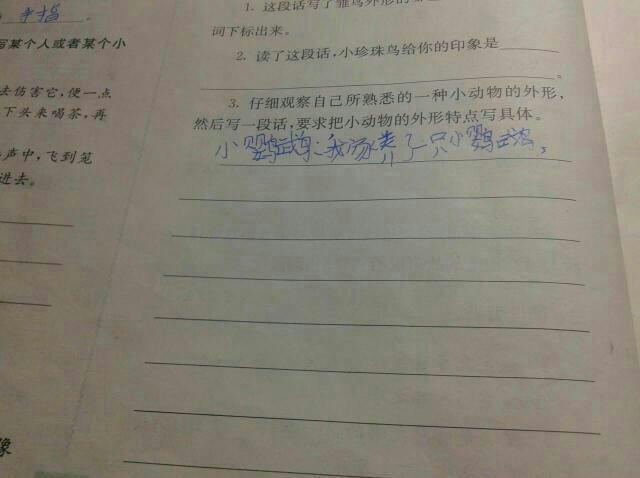 手指
写某个人或者某个小
去伤害它，便一点
下头来喝茶，再
声中，飞到笼
进去。
像
1. 这段话写了雏鸟外形的
词下标出来。
2. 读了这段话，小珍珠鸟给你的印象是
。
3. 仔细观察自己所熟悉的一种小动物的外形，
然后写一段话，要求把小动物的外形特点写具体。
小鹦鹉：我家养了一只小鹦鹉，